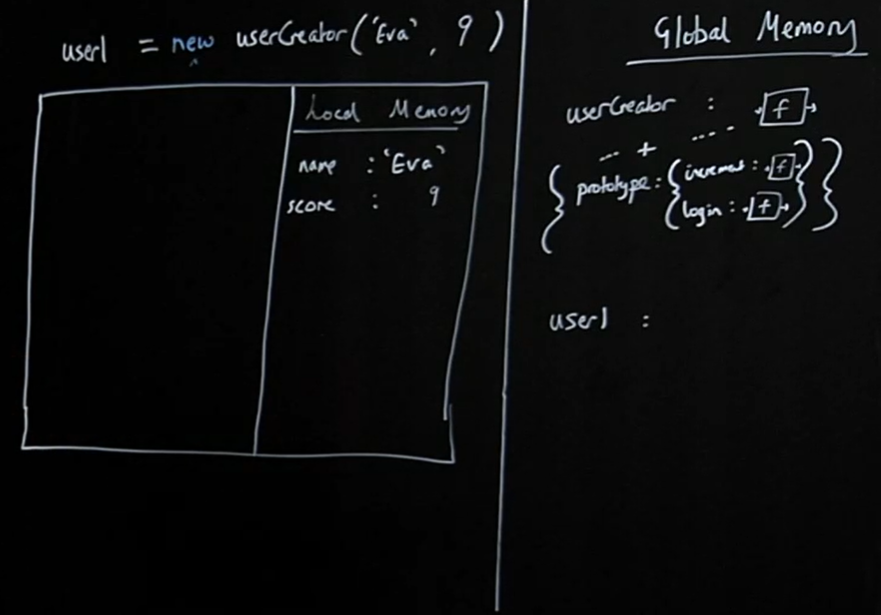 user1 = new userCreator('Eva', 9)
Local Memory
name : 'Eva'
score : 9
Global Memory
userCreator : f
... + ....
{ prototype: { increment : f
login : f } }
user1 :